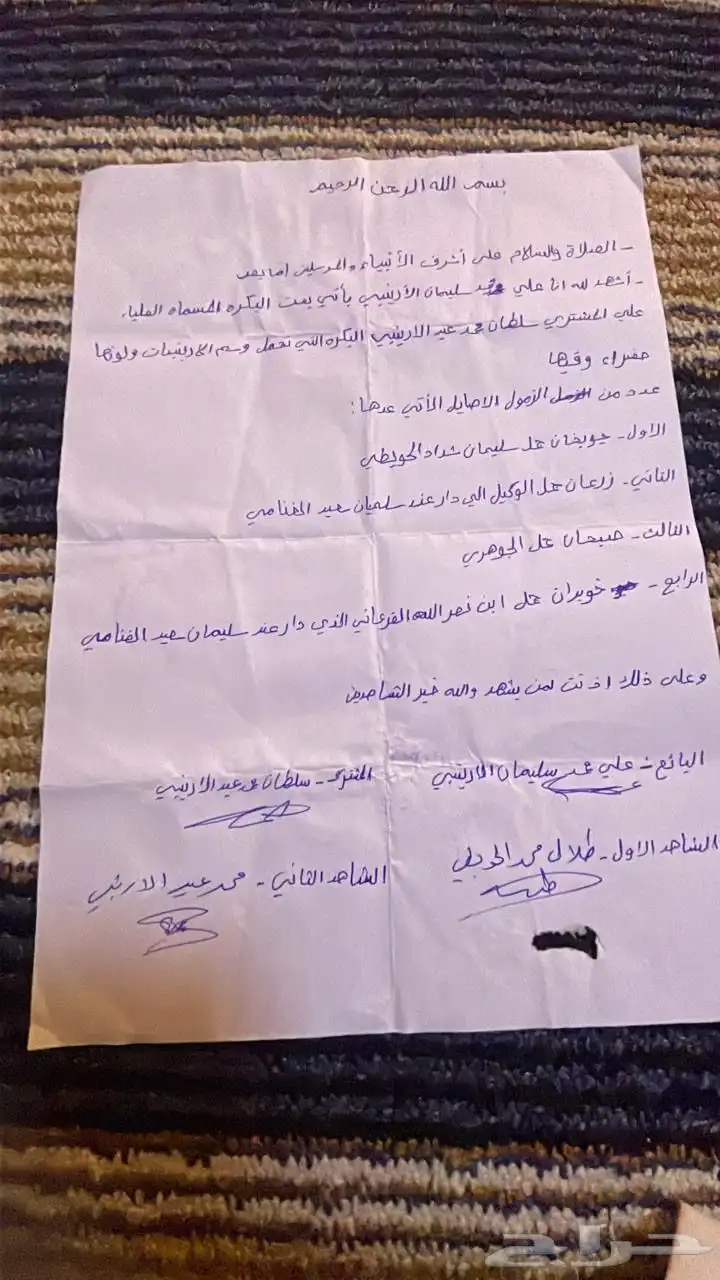 بسم الله الرحمن الرحيم
- الصلاة والسلام على أشرف الأنبياء والمرسلين اما بعد
- أشهد لله انا علي محمد سليمان الأرينبي بأني بعت البكره المسماه العلياء
علي المشتري سلطان محمد عيد الارينبي البكره التي تحمل وسم الارينبات ولونها
صفراء وفيها
عدد من الزمول الاصايل الأتي عدها:
الاول - جويخان حل سليمان شداد الحويطي
الثاني - زرعان حل الوكيل الي دار عند سلميان سعيد الغنامي
الثالث - صبحان حل الجوهري
الرابع - خويران حل ابن نصر الله القرعاني الذي دار عند سليمان سعيد الغنامي
وعلى ذلك اذنت لمن يشهد والله خير الشاهدين
البائع - علي محمد سليمان الارينبي المشتري - سلطان محمد عيد الارينبي
الشاهد الاول - طلال محمد الحويطي الشاهد الثاني - محمد عيد الارينبي
حراج